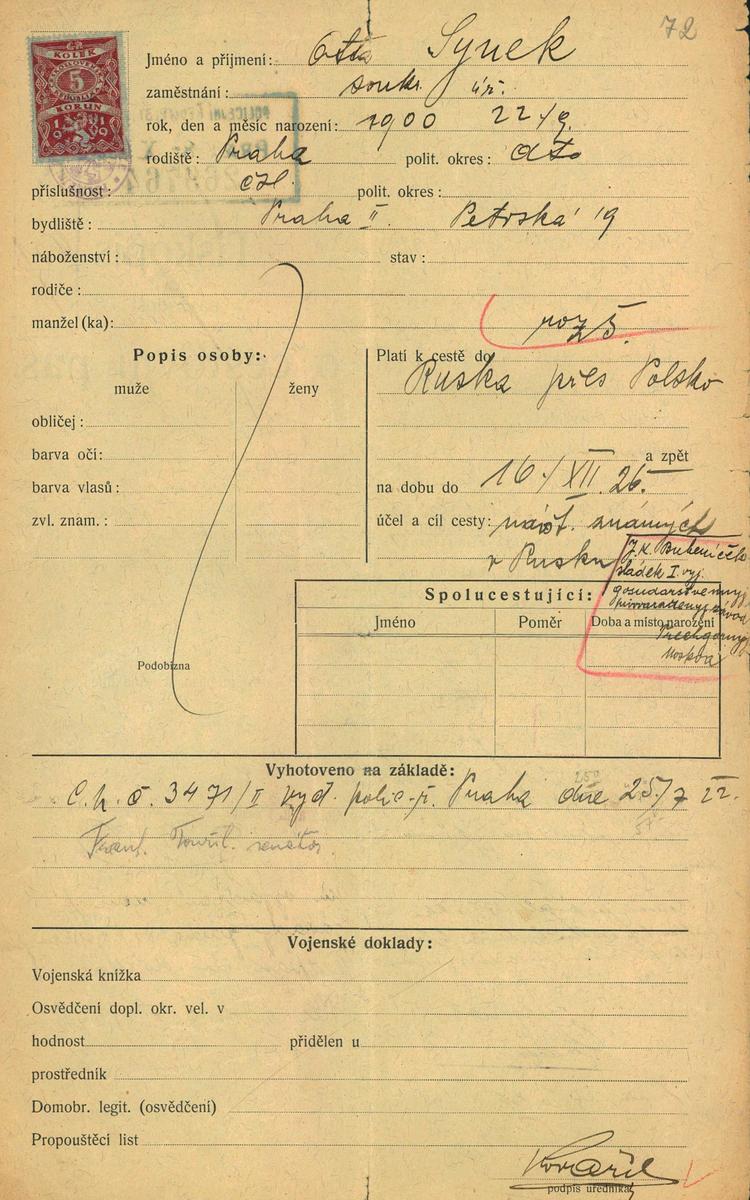 72
KOLEK
5
KORUN
1919
Jméno a příjmení: Otto Synek
zaměstnání: soukr. úř.
rok, den a měsíc narození: 1900 22/9.
rodiště: Praha polit. okres: dto
příslušnost: čsl. polit. okres:
bydliště: Praha II. Petrská 19
náboženství: stav:
rodiče:
manžel(ka):
Popis osoby:
muže ženy
obličej:
barva očí:
barva vlasů:
zvl. znam.:
Podobizna
Platí k cestě do
Ruska přes Polsko
a zpět
na dobu do 16/XII. 26.
účel a cíl cesty: návšt. známých
v Rusku
J.K. Bubeníček
sládek I. vyj.
gosudarstvennyj
závod
Moskva
Spolucestující:
Jméno Poměr Doba a místo narození
Vyhotoveno na základě:
C.h. č. 3471/II vyd. polic. ř. Praha dne 25/7 22.
Frant. senátor
Vojenské doklady:
Vojenská knížka
Osvědčení dopl. okr. vel. v
hodnost přidělen u
prostředník
Domobr. legit. (osvědčení)
Propouštěcí list
podpis úředníka